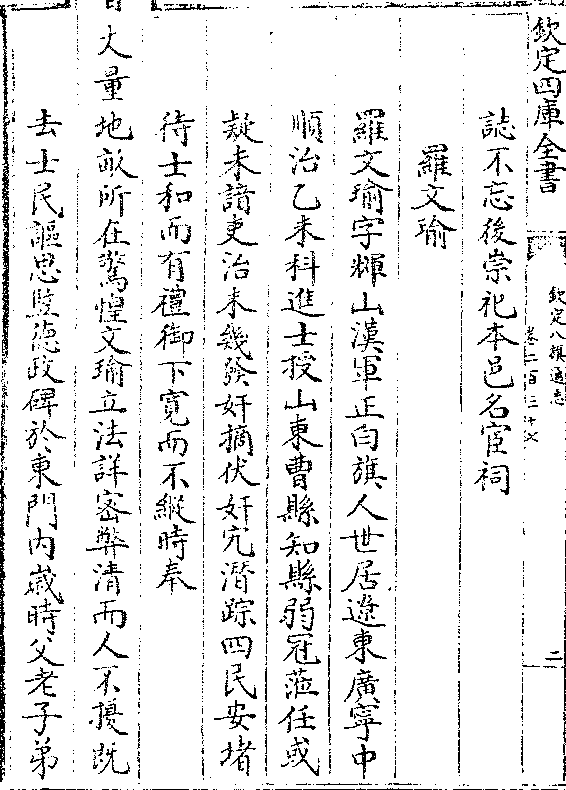 欽定四庫全書
欽定八旗通志
卷二百三十七
二
誌不忘後崇祀本邑名宦祠
羅文瑜
羅文瑜字輝山漢軍正白旗人世居遼東廣寧中
順治乙未科進士授山東曹縣知縣弱冠蒞任或
疑未諳吏治未幾發奸摘伏奸宄潛踪四民安堵
待士和而有禮御下寛而不縱時奉
丈量地畝所在驚惶文瑜立法詳密弊清而人不擾既
去士民謳思豎德政碑於東門内嵗時父老子弟